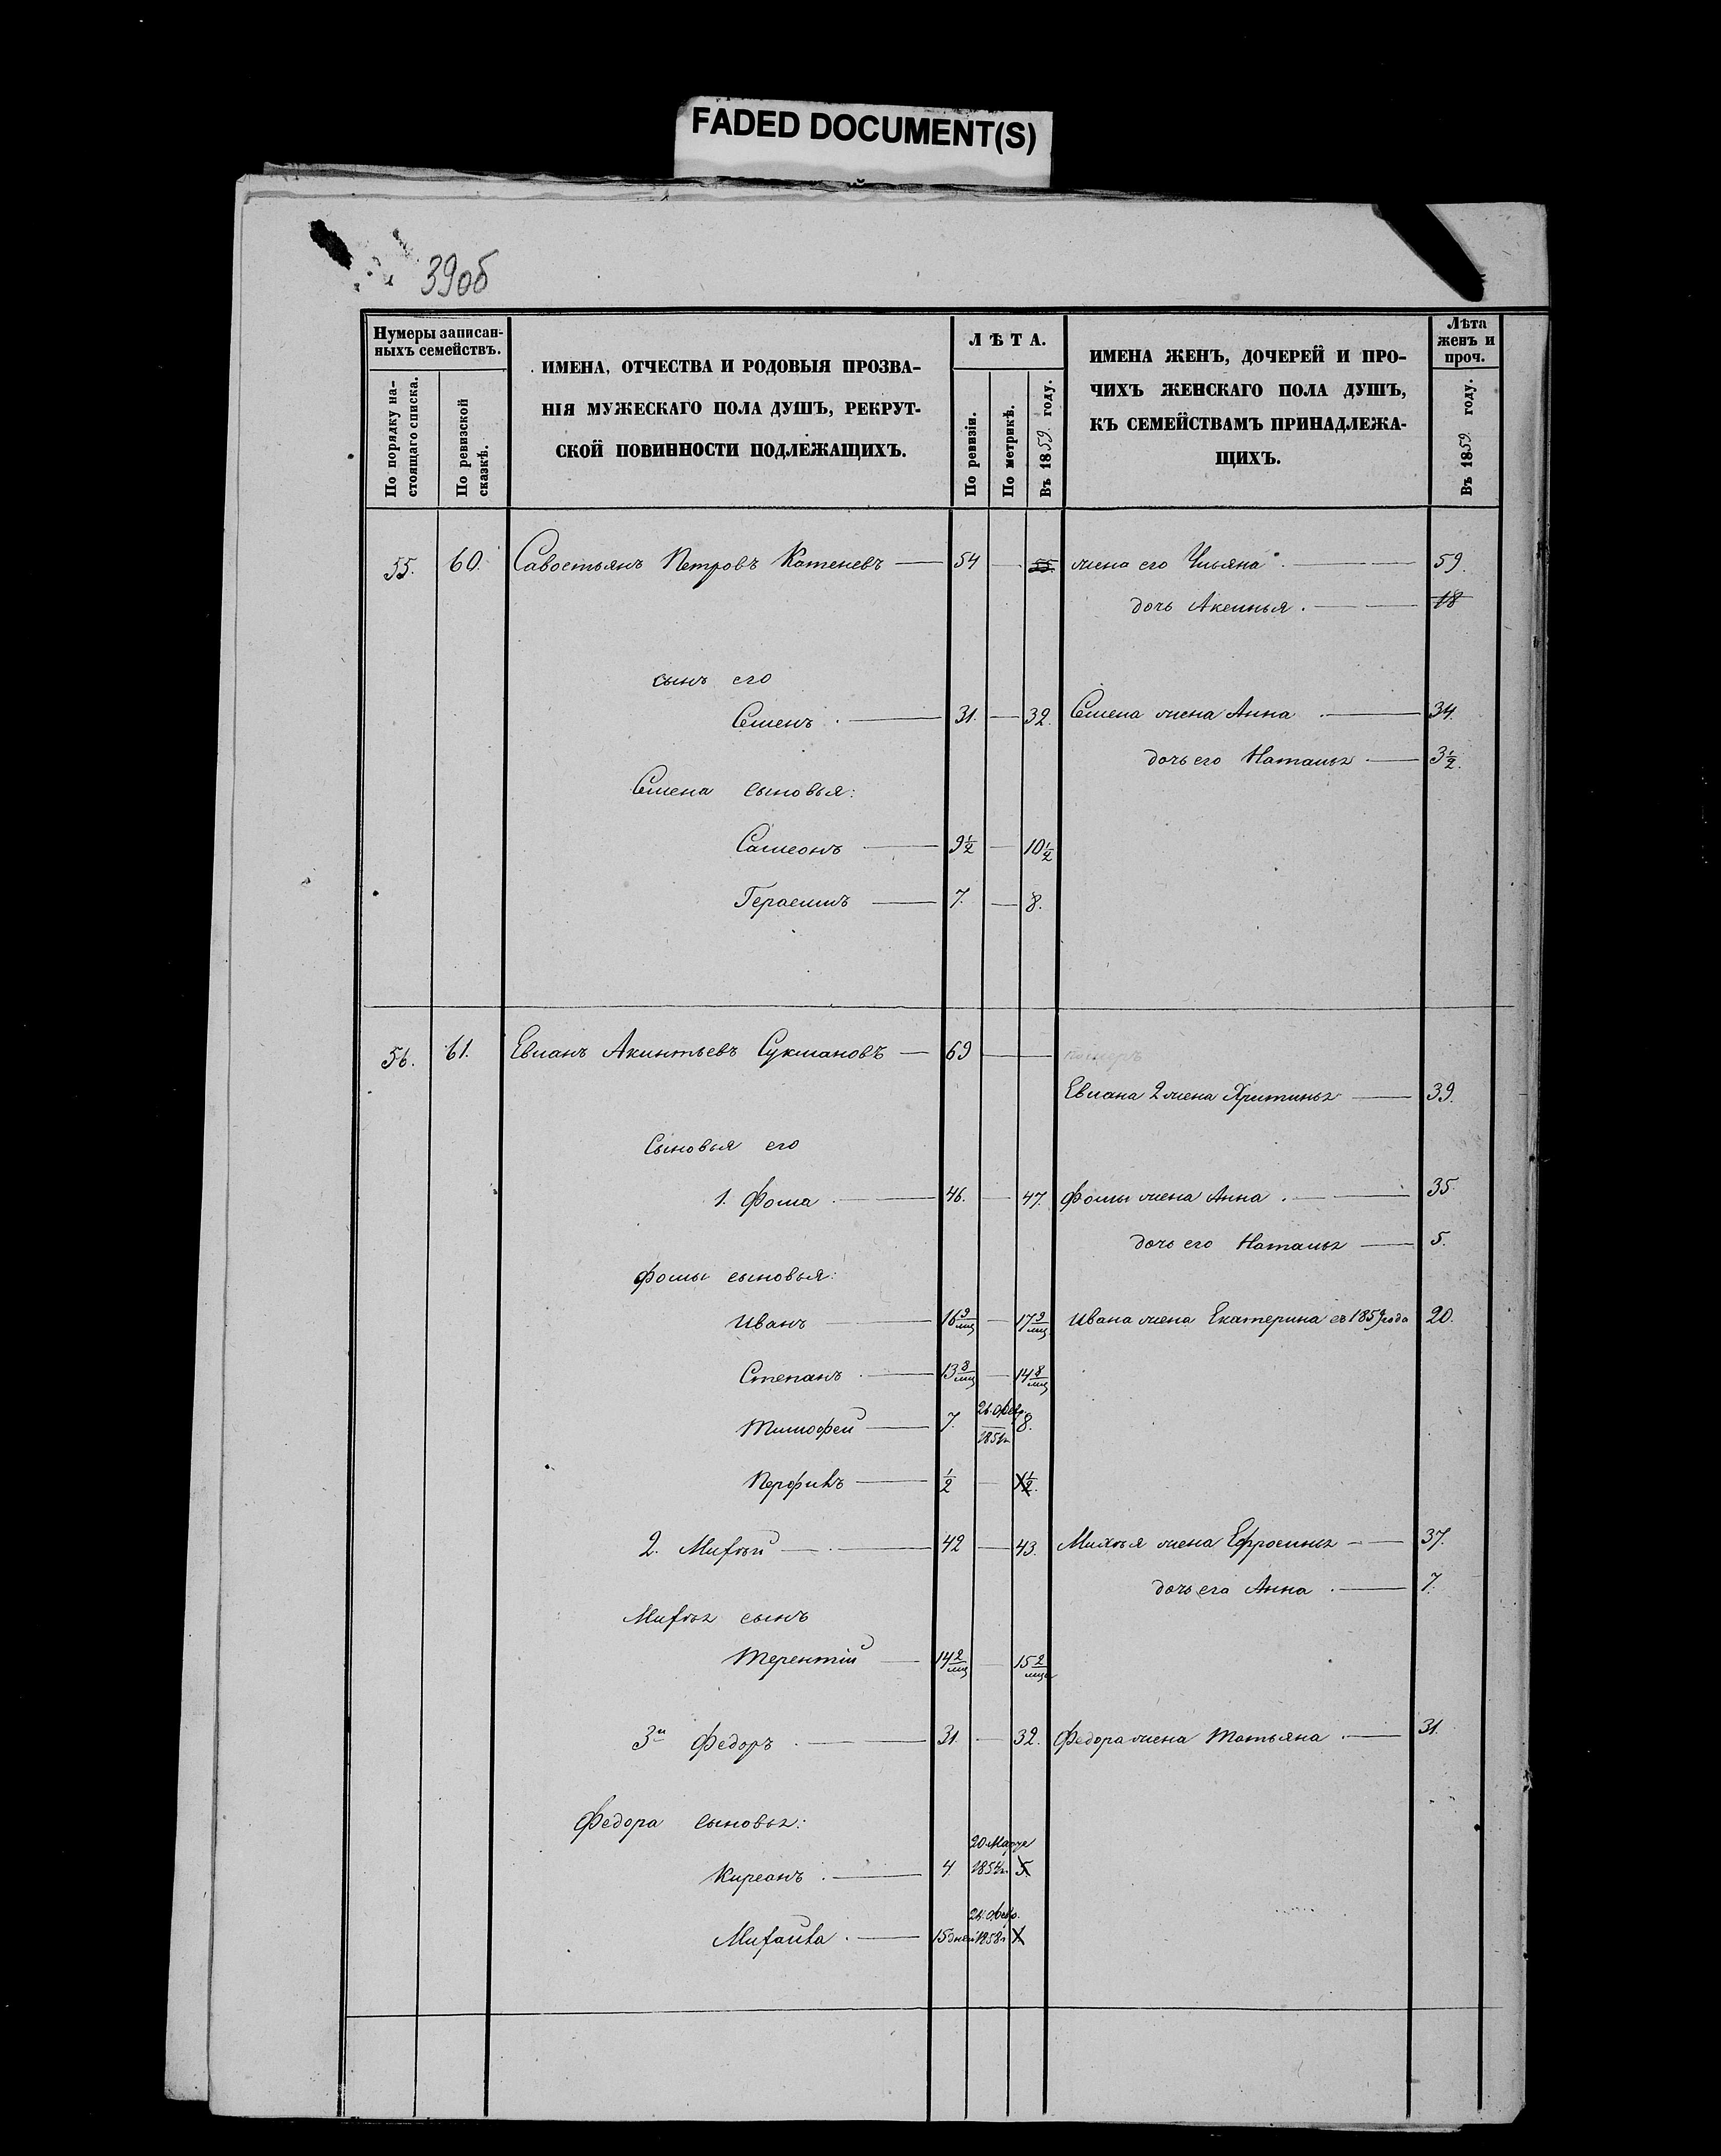 FADED DOCUMENT(S)
39об
Нумеры записан-
ныхъ семействъ.
По порядку на-
стоящаго списка.
По ревизской
сказкѣ.
ИМЕНА, ОТЧЕСТВА И РОДОВЫЯ ПРОЗВА-
НІЯ МУЖЕСКАГО ПОЛА ДУШЪ, РЕКРУТ-
СКОЙ ПОВИННОСТИ ПОДЛЕЖАЩИХЪ.
ЛѢТА.
По ревизіи.
По метрикѣ.
Въ 1859 году.
ИМЕНА ЖЕНЪ, ДОЧЕРЕЙ И ПРО-
ЧИХЪ ЖЕНСКАГО ПОЛА ДУШЪ,
КЪ СЕМЕЙСТВАМЪ ПРИНАДЛЕЖА-
ЩИХЪ.
Лѣта
женъ и
проч.
Въ 1859 году.
55. 60. Савостьянъ Петровъ Катеневъ — 54 — 55. жена его Ульяна — 59.
дочь Аксинья. — 18
сынъ его
Семенъ — 31. — 32. Семена жена Анна — 34.
дочь его Наталья — 3½.
Семена сыновья:
Самсонъ — 9½ — 10½
Герасимъ — 7. — 8.
56. 61. Евланъ Акинтьевъ Сукмановъ — 69 — померъ
Евлана 2 жена Христинья — 39.
Сыновья его
1. Фома — 46. — 47. Фомы жена Анна. — 35.
дочь его Наталья — 5.
Фомы сыновья:
Иванъ — 16 9/мц — 17 9/мц Ивана жена Екатерина съ 1859 года 20.
Степанъ — 13 8/мц — 14 8/мц
Тимофей — 7. 26. Февр. 1851 г. 8.
Перфилъ — ½ — 1½.
2. Михѣй — 42 — 43. Михѣя жена Ефросинья — 37.
дочь его Анна — 7.
Михѣя сынъ
Терентій — 14 2/мц — 15 2/мца
3й Федоръ — 31. — 32. Федора жена Татьяна — 31.
Федора сыновья:
4. 20 Марта 1854 г. 5
Михайла — 15 дней 26. Февр. 1858 г. 1